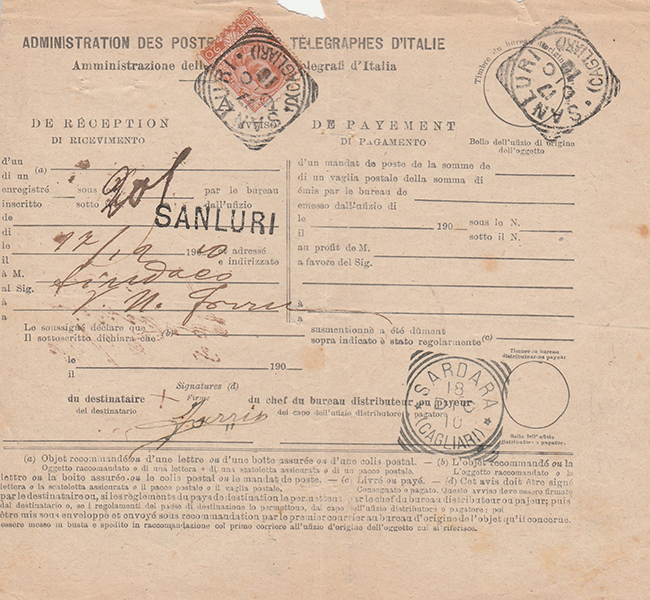 ADMINISTRATION DES POSTE TÉLÉGRAPHES D'ITALIE
Amministrazione delle elegrafi d'Italia
Timbre du bureau d'origine
SANLURI (CAGLIARI)
17
10
SANLURI (CAGLIARI)
17
10
AVVISO
DE RÉCEPTION
DI RICEVIMENTO
DE PAYEMENT
DI PAGAMENTO
Bollo dell'ufizio di origine
dell'oggetto
d'un (a)
di un
enregistré sous 201 par le bureau
inscritto sotto dall'ufizio
de SANLURI
di
le 17/12 1910 adressé
il e indirizzate
à M. Sindaco
al Sig.
à
a
Le soussigné déclare que (b)
Il sottoscritto dichiara che
d'un mandat de poste de la somme de
di un vaglia postale della somma di
émis par le bureau de
emesso dall'ufizio di
le 190 sous le N.
il sotto il N.
au profit de M.
a favore del Sig.
à
a
susmentionné a été dûment (c)
sopra indicato è stato regolarmente
le 190
il
SARDARA
18
DIC
10
(CAGLIARI)
Timbre du bureau
distributeur ou payeur
Bollo dell'ufizio
distributivo o pagatore.
Signatures (d)
Firme
du destinataire + du chef du bureau distributeur ou payeur
del destinatario del capo dell'ufizio distributore o pagatore
(a) Objet recommandé ou d'un lettre ou d'une boîte assurée ou d'une colis postal. — (b) L'objet recommandé ou la
Oggetto raccomandato o di una lettera o di una scatoletta assicurata o di un pacco postale. L'oggetto raccomandato o la
lettre ou la boîte assurée ou le colis postal ou le mandat de poste. — (c) Livré ou payé. — (d) Cet avis doit être signé
lettera o la scatoletta assicurata o il pacco postale o il vaglia postale. Consegnato o pagato. Questo avviso deve essere firmato
par le destinataire ou, si les règlements du pays de destination le permettent, par le chef du bureau distributeur ou payeur; puis
dal destinatario o, se i regolamenti del paese di destinazione lo permettono, dal capo dell'ufizio distributore o pagatore; poi
être mis sous enveloppe et envoyé sous recommandation par le premier courrier au bureau d'origine de l'objet qu'il concerne.
essere messo in busta e spedito in raccomandazione col primo corriere all'ufizio d'origine dell'oggetto cui si riferisce.